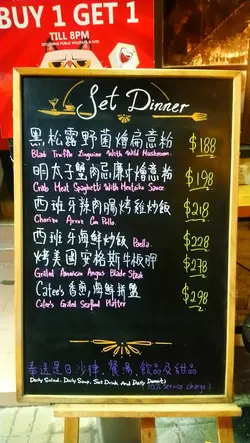 BUY 1 GET 1
TILL 8PM
Set Dinner
黑松露野菌燴扁意粉 $188
Black Truffle Linguine With Wild Mushroom.
明太子蟹肉忌廉汁燴意粉 $198
Crab Meat Spaghetti With Mentaiko Sauce
西班牙辣肉腸烤雞炒飯 $218
Chorizo Arroz Con Pollo
西班牙海鮮炒飯 Paella. $228
烤美國安格斯牛板腱 $278
Grilled American Angus Blade Steak
Cafee's 香煎海鮮拼盤 $298
Cafee's Grilled Seafood Platter
奉送是日沙律, 餐湯, 飲品及甜品
(Daily Salad, Daily Soup, Set Drink And Daily Dessert)
(10% service charge)